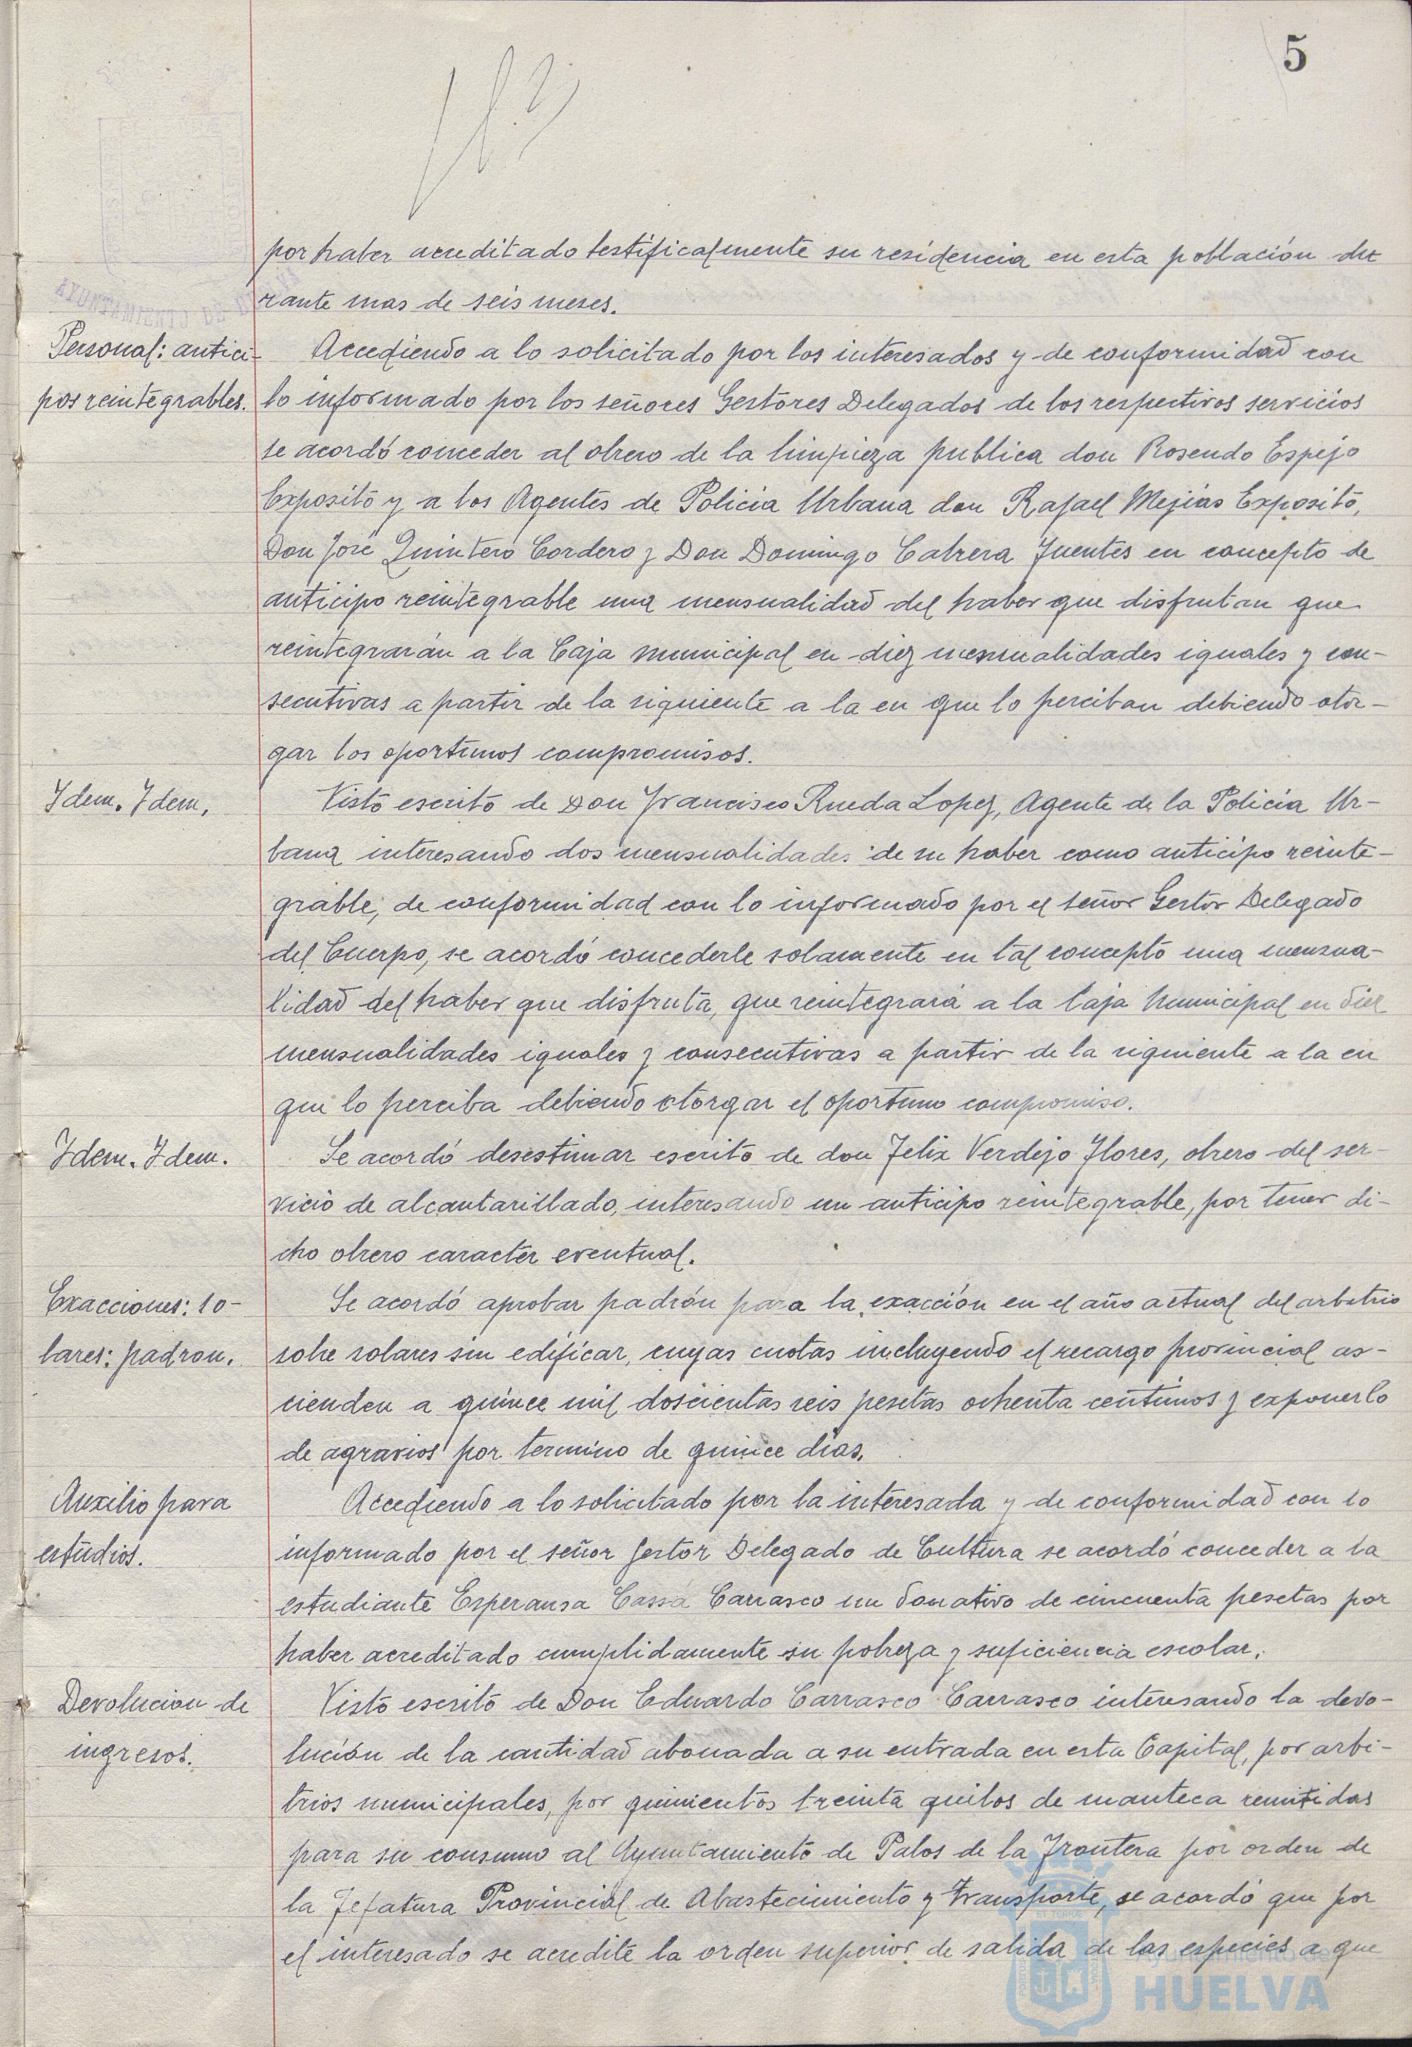 5
por haber acreditado testificalmente su residencia en esta población du
rante mas de seis meses.
Personal: antici-
pos reintegrables.
Accediendo a lo solicitado por los interesados y de conformidad con
lo informado por los señores Gestores Delegados de los respectivos servicios
se acordó conceder al obrero de la limpieza publica don Rosendo Espejo
Exposito y a los Agentes de Policia Urbana don Rafael Mejias Exposito,
Don José Quintero Cordero y Don Domingo Cabrera Fuentes en concepto de
anticipo reintegrable una mensualidad del haber que disfrutan que
reintegrarán a la Caja municipal en diez mensualidades iguales y con-
secutivas a partir de la siguiente a la en que lo perciban debiendo otor-
gar los oportunos compromisos.
Idem. Idem.
Visto escrito de Don Francisco Rueda Lopez, Agente de la Policia Ur-
bana interesando dos mensualidades de su haber como anticipo reinte-
grable, de conformidad con lo informado por el señor Gestor Delegado
del Cuerpo, se acordó concederle solamente en tal concepto una mensua-
lidad del haber que disfruta, que reintegrará a la Caja Municipal en diez
mensualidades iguales y consecutivas a partir de la siguiente a la en
que lo perciba debiendo otorgar el oportuno compromiso.
Idem. Idem.
Se acordó desestimar escrito de don Felix Verdejo Flores, obrero del ser-
vicio de alcantarillado, interesando un anticipo reintegrable, por tener di-
cho obrero caracter eventual.
Exacciones: so-
lares: padron.
Se acordó aprobar padrón para la exacción en el año actual del arbitrio
sobre solares sin edificar, cuyas cuotas incluyendo el recargo provincial as-
cienden a quince mil doscientas seis pesetas ochenta centimos y exponerlo
de agravios por termino de quince dias.
Auxilio para
estudios.
Accediendo a lo solicitado por la interesada y de conformidad con lo
informado por el señor Gestor Delegado de Cultura se acordó conceder a la
estudiante Esperansa Cassá Carrasco un donativo de cincuenta pesetas por
haber acreditado cumplidamente su pobreza y suficiencia escolar.
Devolucion de
ingresos.
Visto escrito de Don Eduardo Carrasco Carrasco interesando la devo-
lución de la cantidad abonada a su entrada en esta Capital, por arbi-
trios municipales, por quinientos treinta quilos de manteca remitidas
para su consumo al Ayuntamiento de Palos de la Frontera por orden de
la Jefatura Provincial de Abastecimiento y transporte, se acordó que por
el interesado se acredite la orden superior de salida de las especies a que
AYUNTAMIENTO DE
Ayuntamiento de
HUELVA